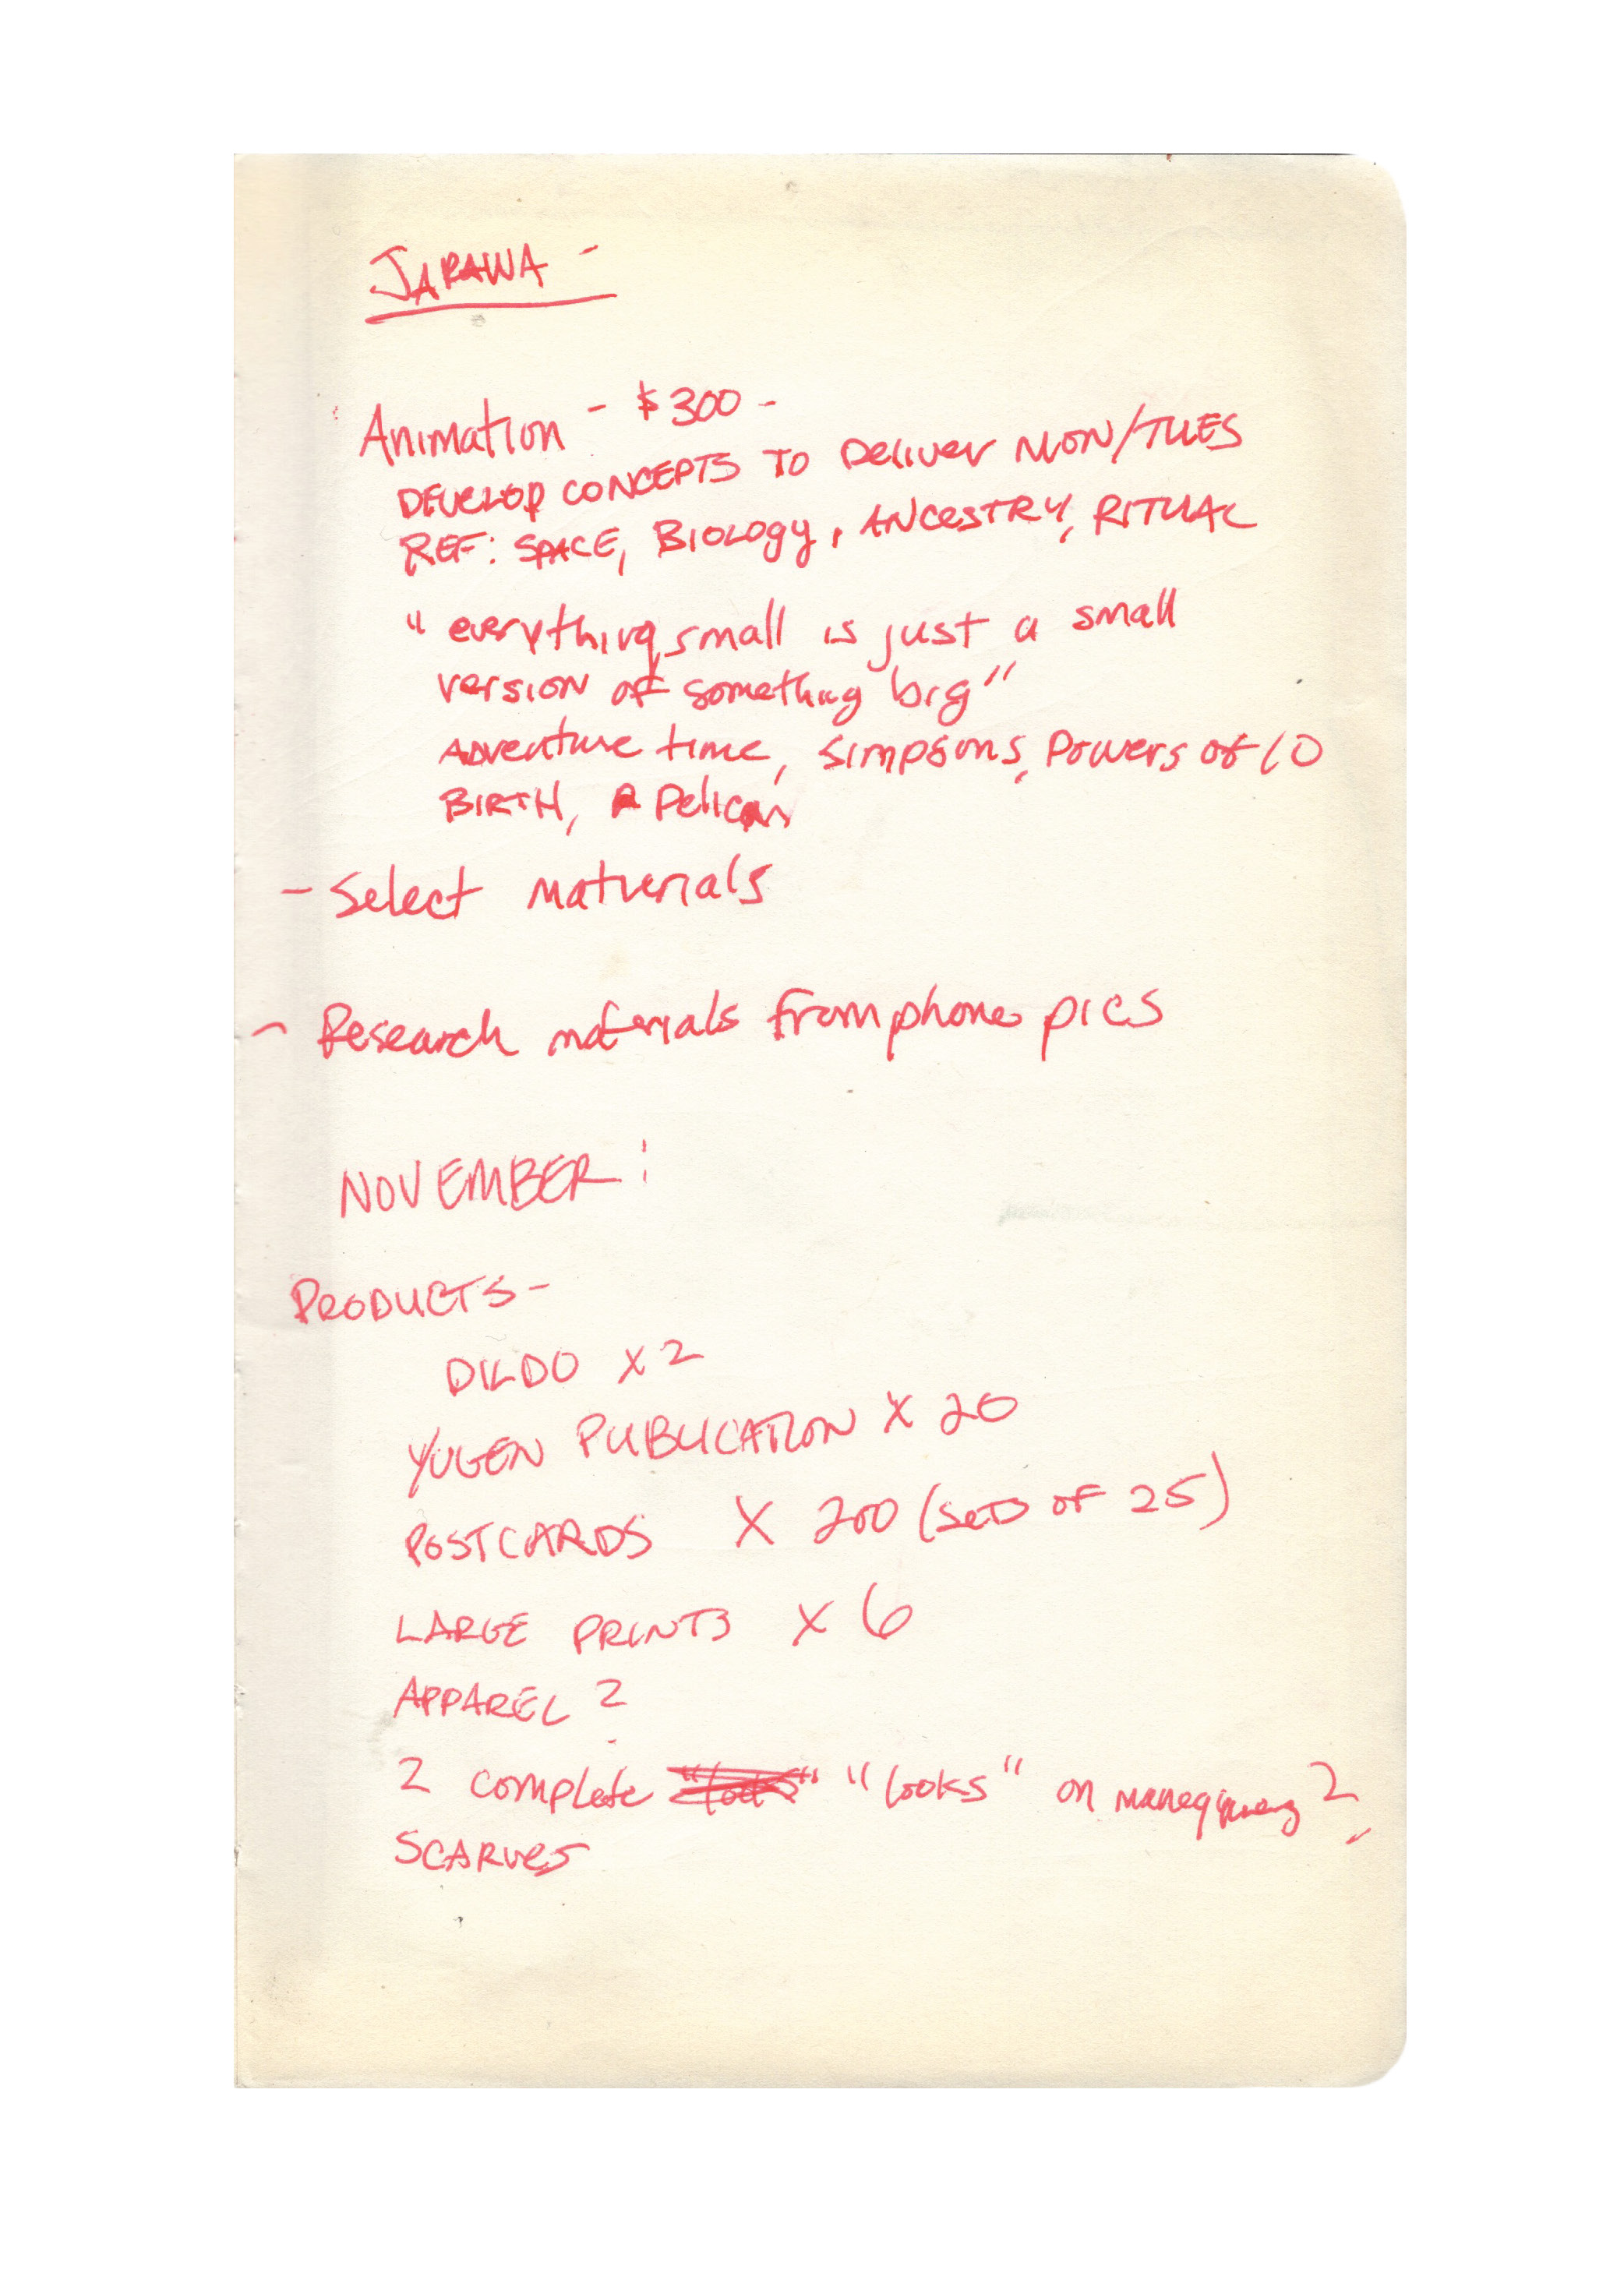 JARAWA -
Animation - $300 -
DEVELOP CONCEPTS TO Deliver MON/TUES
REF: SPACE, BIOLOGY, ANCESTRY, RITUAL
"everything small is just a small
version of something big"
Adventure time, Simpsons, Powers of 10
BIRTH, A Pelican
- Select materials
- Research materials from phone pics
NOVEMBER:
PRODUCTS -
DILDO x 2
YUGEN PUBLICATION X 20
POSTCARDS X 200 (SETS OF 25)
LARGE PRINTS X 6
APPAREL ?
2 complete "looks" "looks" on ?
SCARVES